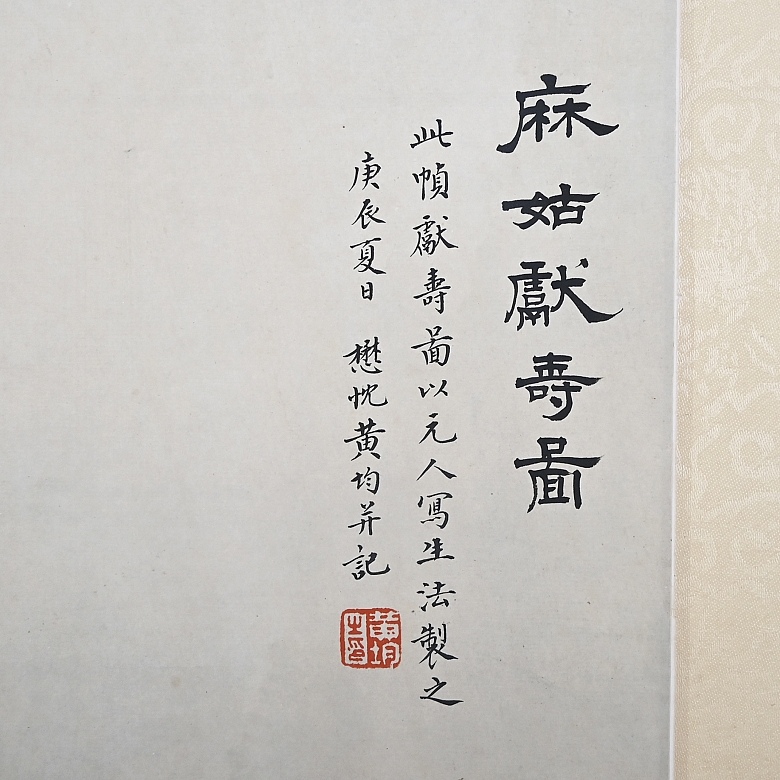 麻姑獻壽啚
此幀獻壽啚以元人寫生法製之
庚辰夏日 懋忱黃均并記
黃均之印